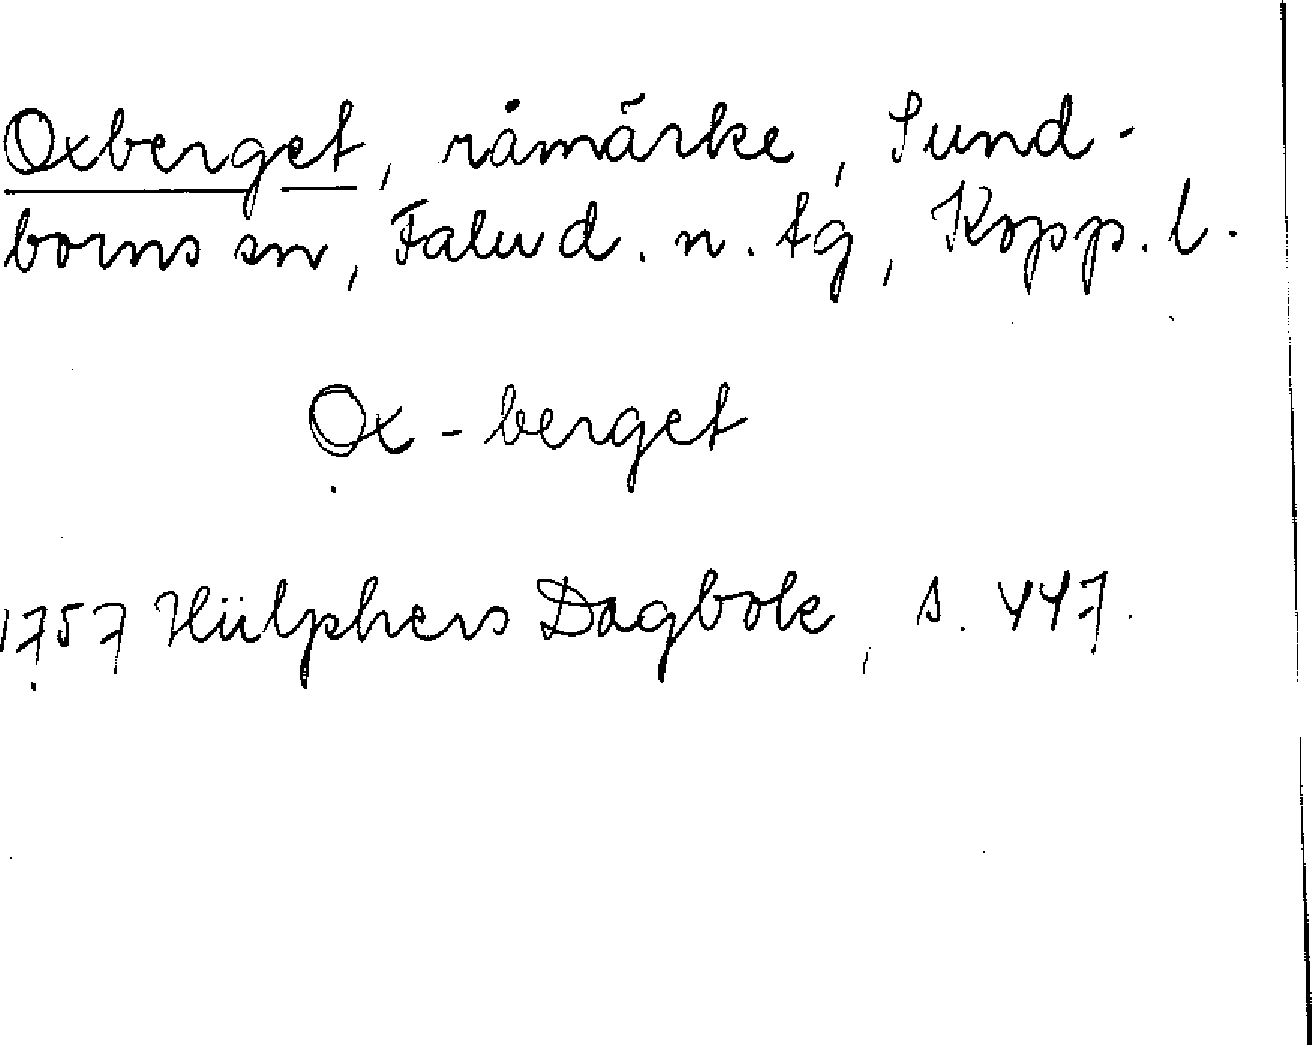 Oxberget, råmärke, Sund-
borns sn, Falu d. n. tg, Kopp. l.
Ox-berget
1757 Hülphers Dagbok, s. 447.